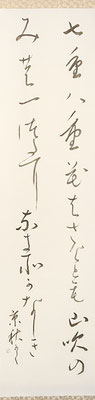 七重八重花はさけとも山吹の
みの一つたになきそかなしき